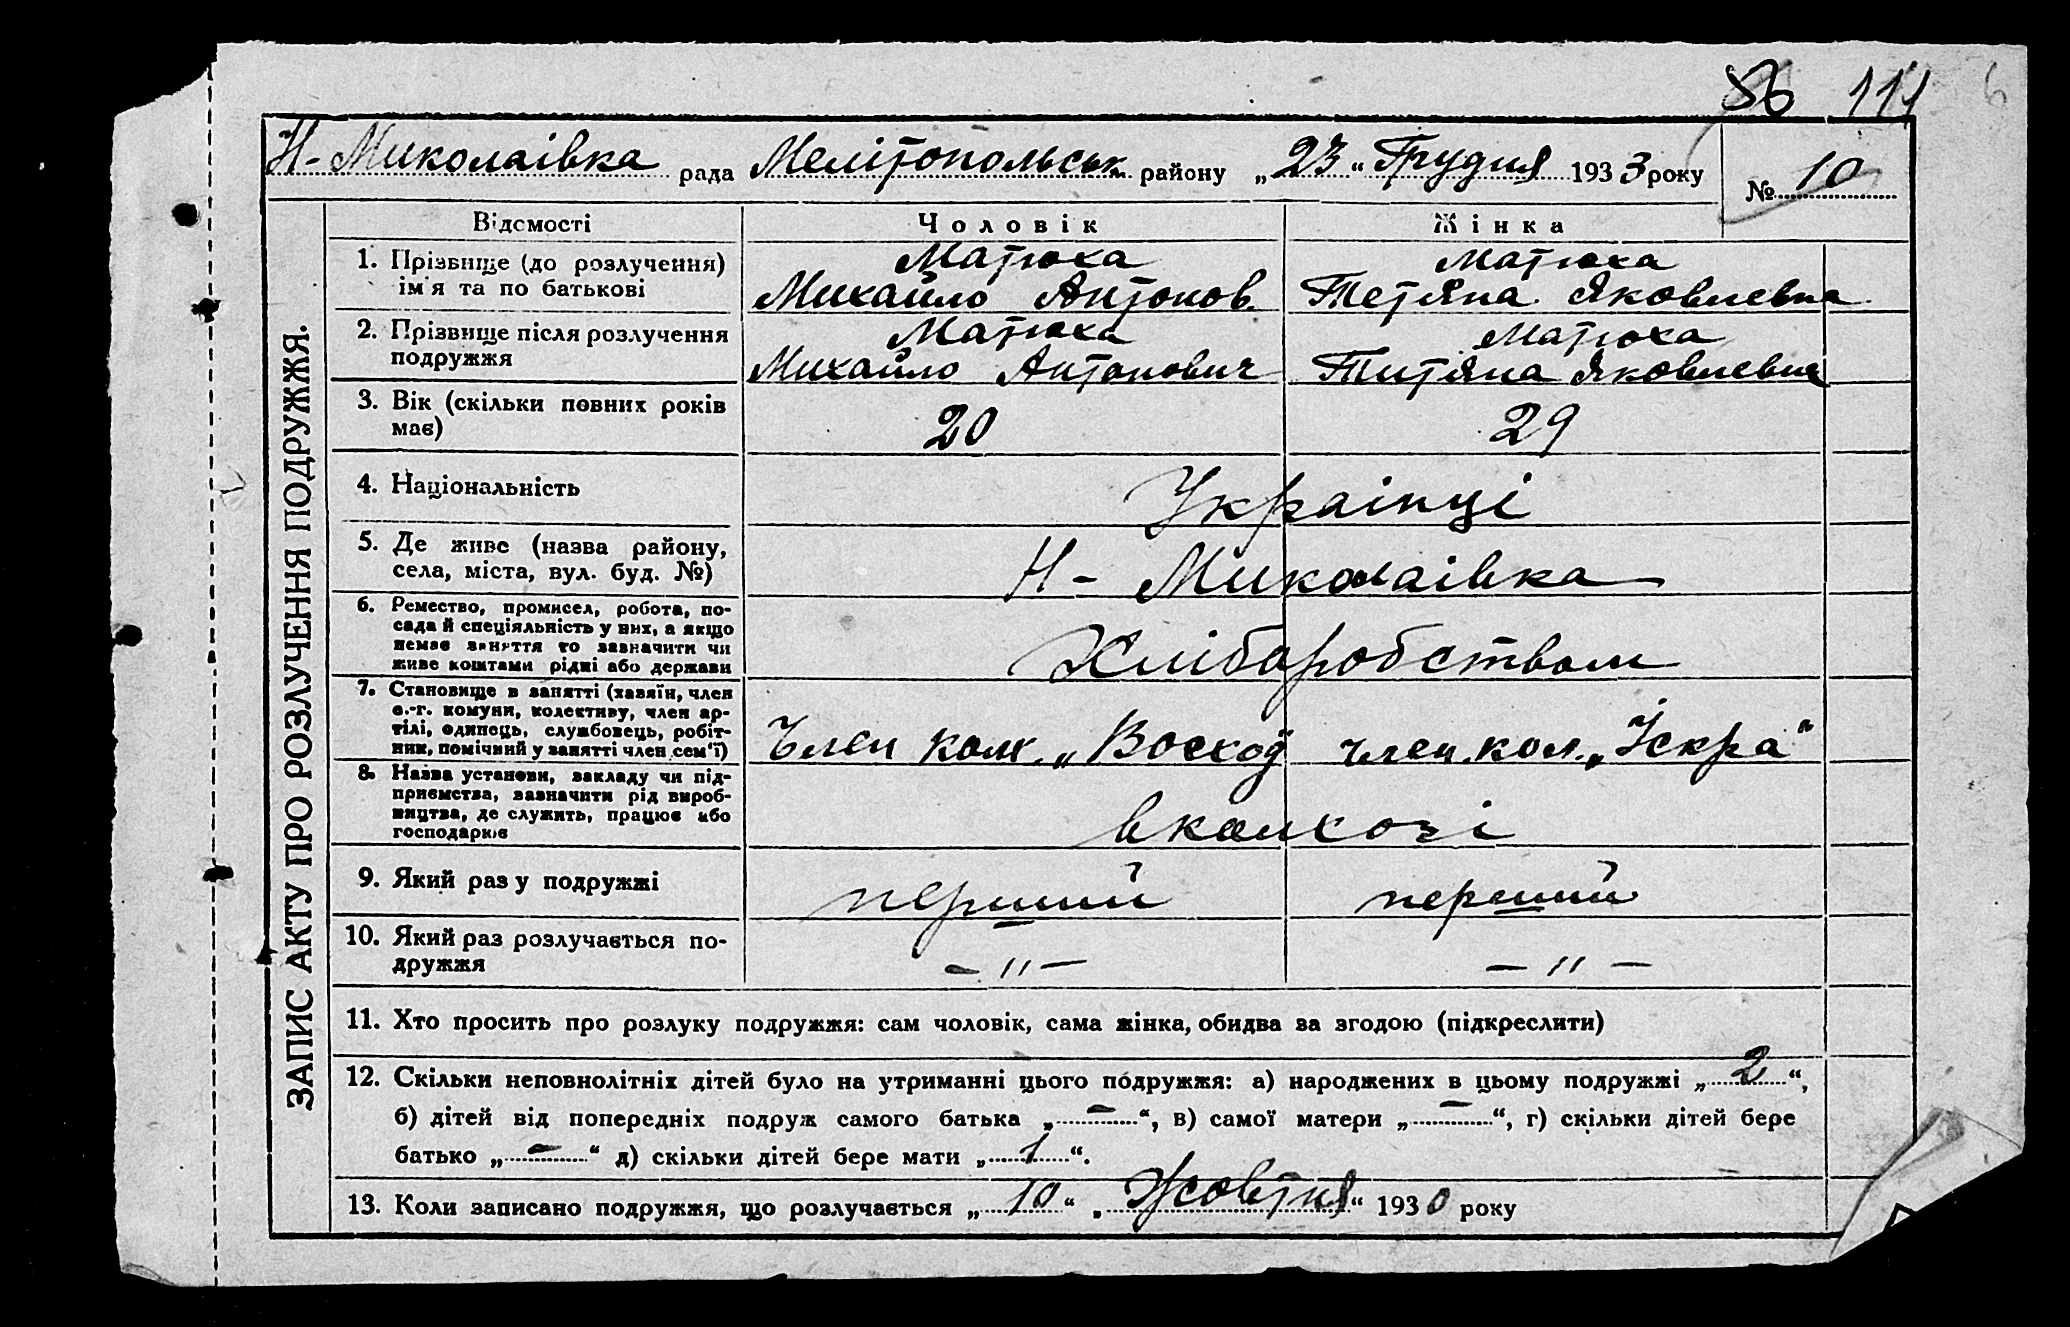 86 111 6
Н-Миколаівка рада Мелітопольськ. району „23“ Грудня 1933 року № 10
ЗАПИС АКТУ ПРО РОЗЛУЧЕННЯ ПОДРУЖЖЯ.
Відомості Чоловік Жінка
1. Прізвище (до розлучення) Матюха Матюха
ім'я та по батькові Михайло Антонов. Тетяна Яковлевна
2. Прізвище після розлучення Матюха Матюха
подружжя Михайло Антонович Титяна Яковлевна
3. Вік (скільки повних років
має) 20 29
4. Національність Украінці
5. Де живе (назва району,
села, міста, вул. буд. №) Н-Миколаівка
6. Ремество, промисел, робота, по-
сада й спеціяльність у них, а якщо
немає заняття то зазначити чи
живе коштами рідні або держави Хліборобством
7. Становище в занятті (хазяїн, член
с.-г. комуни, колективу, член ар-
тілі, одинець, службовець, робіт-
ник, помічний у занятті член сем'ї) Член кол. „Восход член. кол. „Іскра“
8. Назва установи, закладу чи під-
приємства, зазначити рід вироб-
ництва, де служить, працює або
господарює в колхозі
9. Який раз у подружжі перший перший
10. Який раз розлучається по-
дружжя — 〃 — — 〃 —
11. Хто просить про розлуку подружжя: сам чоловік, сама жінка, обидва за згодою (підкреслити)
12. Скільки неповнолітніх дітей було на утриманні цього подружжя: а) народжених в цьому подружжі „2“,
б) дітей від попередніх подруж самого батька „—“, в) самої матери „—“, г) скільки дітей бере
батько „—“ д) скільки дітей бере мати „1“.
13. Коли записано подружжя, що розлучається „10“ „Жовтня“ 1930 року